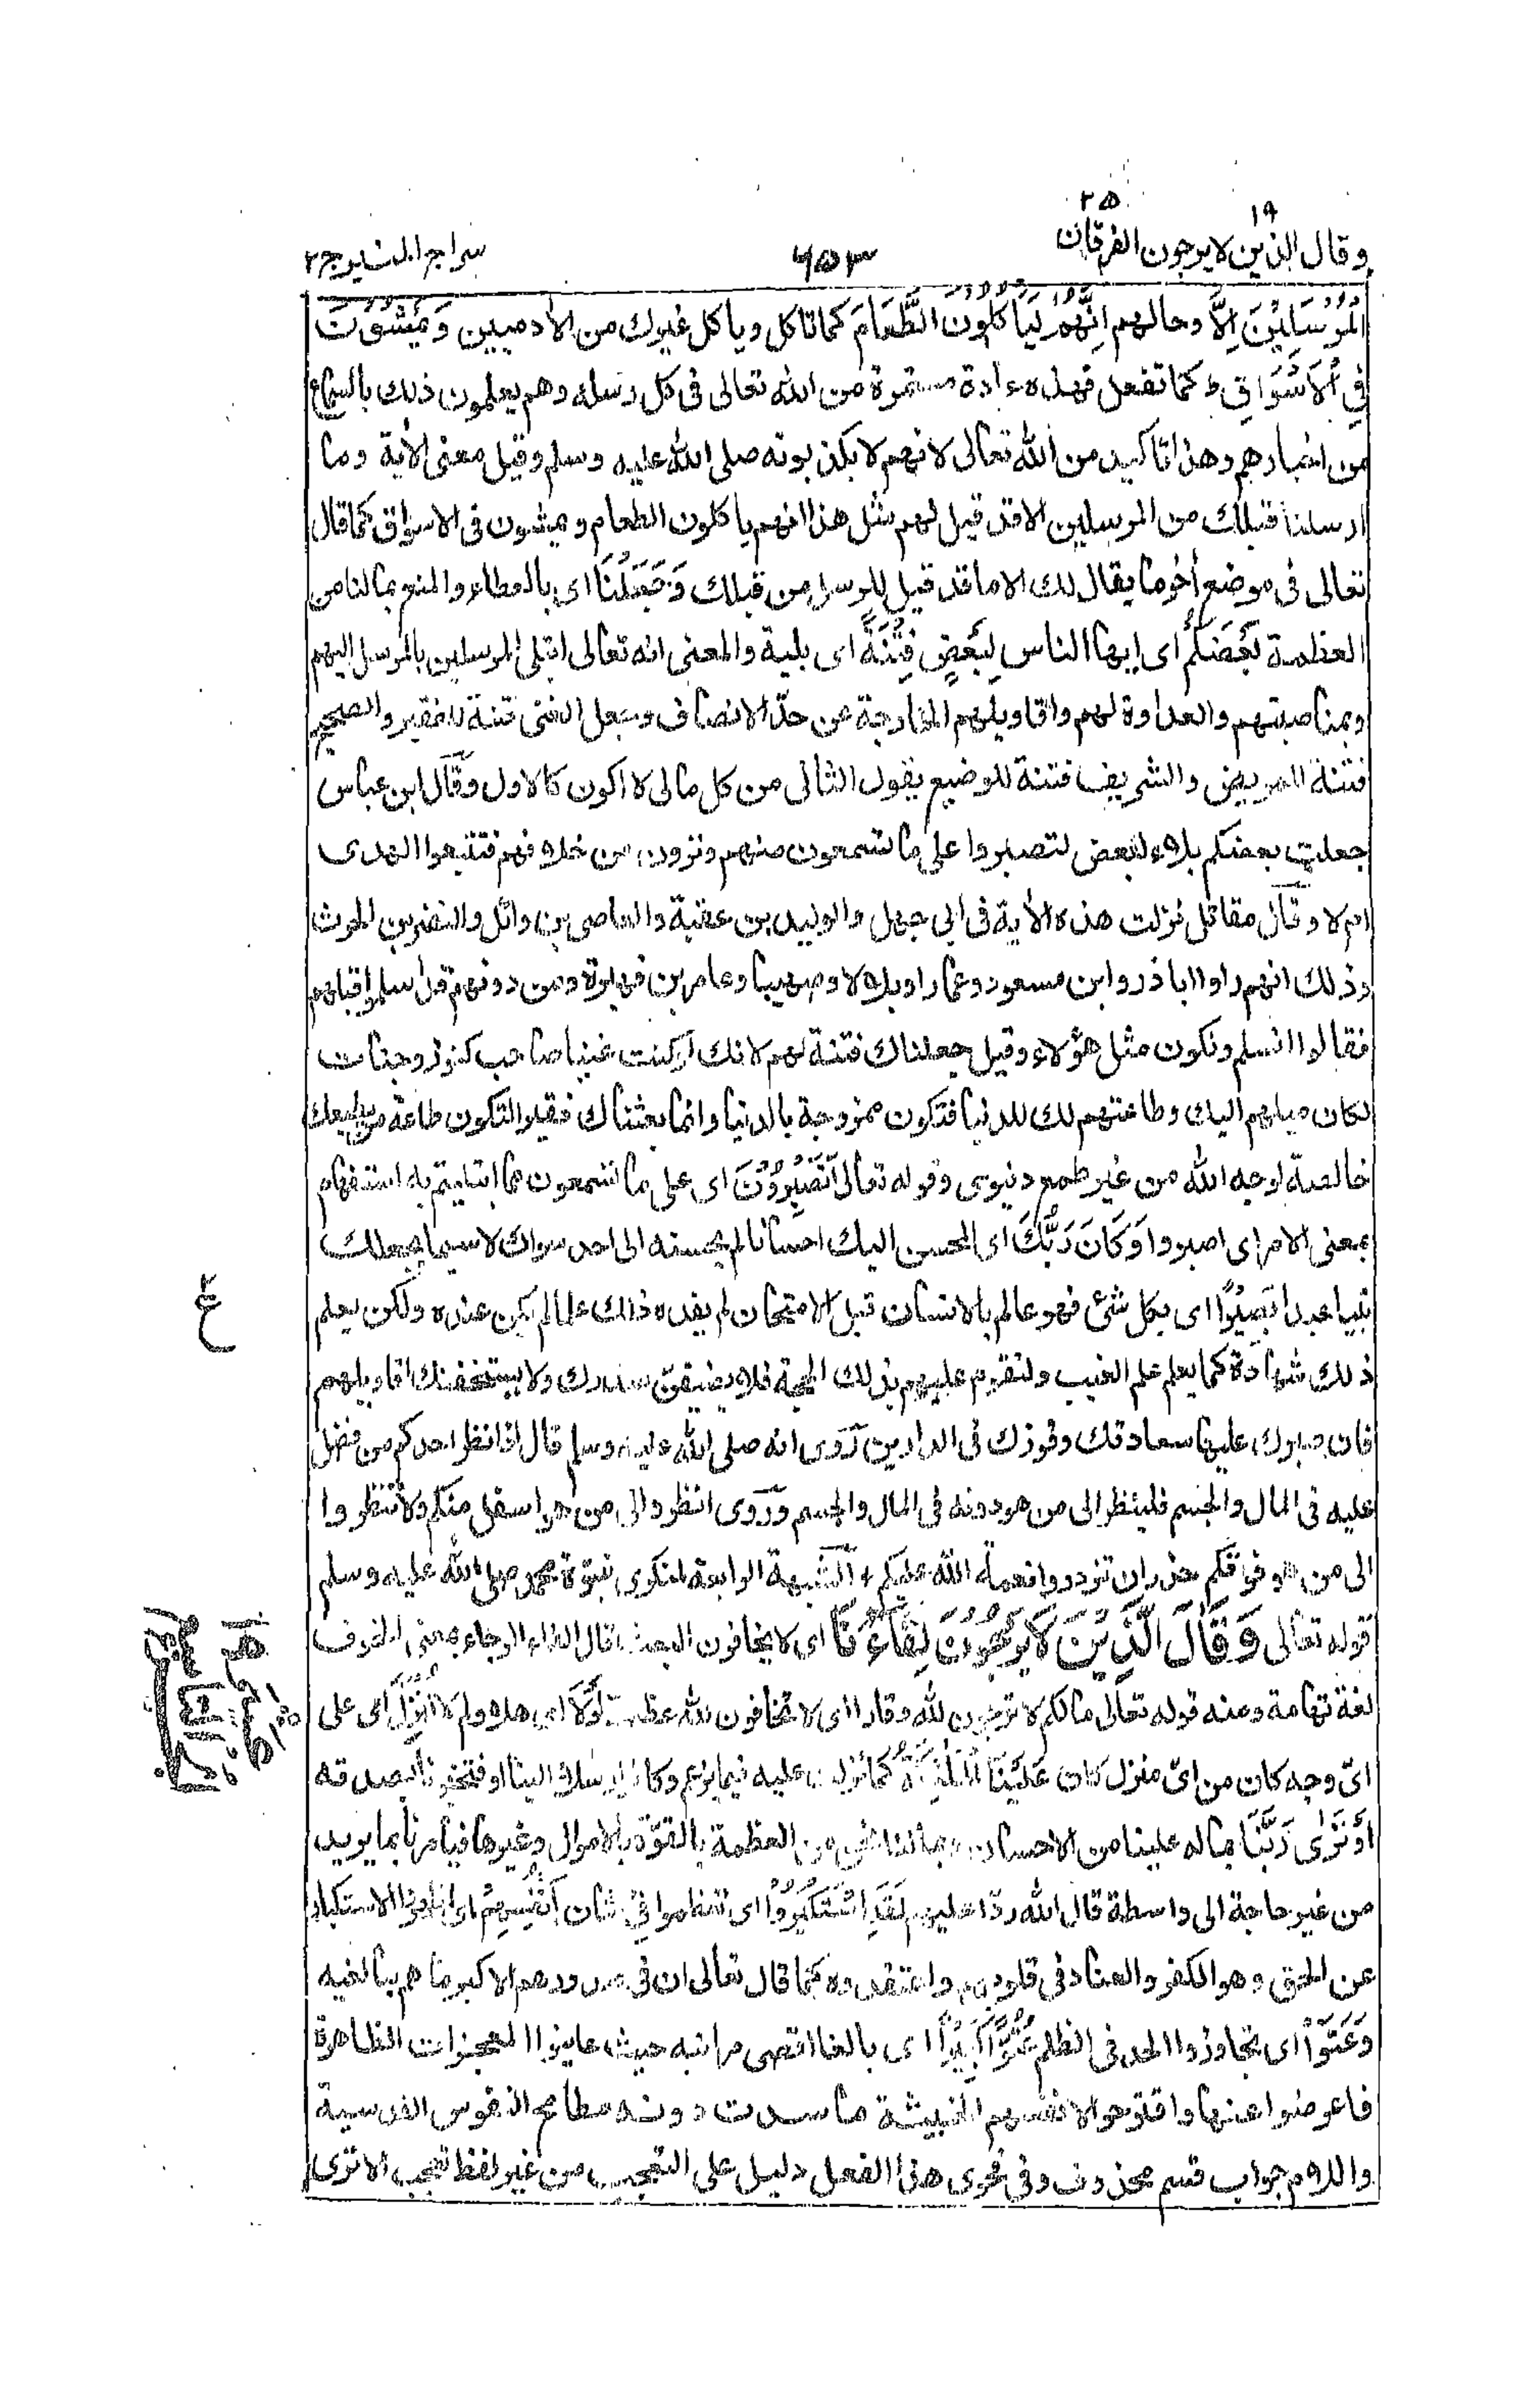 ١٩ ٢٥
وقال الذين لا يرجون الفرقان ٦٥٣ سراج المنير ج٢
الْمُرْسَلِيْنَ اِلَّآ وحالهم اِنَّهُمْ لَيَاْكُلُوْنَ الطَّعَامَ كما تاكل وياكل غيرك من الآدميين وَيَمْشُوْنَ
فِي الْاَسْوَاقِ ط كما تفعل فهذه عادة مستمرة من الله تعالى فى كل رسله وهم يعلمون ذلك بالسماع
من اخبارهم وهذا تاكيد من الله تعالى لانهم لا يكذبونه صلى الله عليه وسلم وقيل معنى الآية وما
ارسلنا قبلك من المرسلين الا قد قيل لهم مثل هذا انهم ياكلون الطعام ويمشون فى الاسواق كما قال
تعالى فى موضع أخر ما يقال لك الا ما قد قيل للرسل من قبلك وَجَعَلْنَا اى بالعطاء والمنع بما لنا من
العظمة بَعْضَكُمْ اى ايها الناس لِبَعْضٍ فِتْنَةً اى بلية والمعنى انه تعالى ابتلى المرسلين بالمرسل اليهم
وبمناصبتهم والعداوة لهم واقاويلهم الخارجة عن حدّ الانصاف وجعل الغنى فتنة للفقير والصحيح
فتنة للمريض والشريف فتنة للوضيع يقول الثانى من كل مالى لا اكون كالاول وقال ابن عباس
جعلت بعضكم بلاء لبعض لتصبروا على ما تسمعون منهم وترون من خلافهم فتتبعوا الهدى
ام لا وقال مقاتل نزلت هذه الآية فى ابى جهل والوليد بن عقبة والعاصى بن وائل والنضر بن الحرث
وذلك انهم راوا اباذر وابن مسعود وعمارا وبلالا وصهيبا وعامر بن فهيرة ومن دونهم قد اسلموا قبلهم
فقالوا انسلم ونكون مثل هؤلاء وقيل جعلناك فتنة لهم لانك لو كنت غنيا صاحب كنوز وجنات
لكان ميلهم اليك وطاعتهم لك للدنيا فتكون ممزوجة بالدنيا وانما بعثناك فقيرا لتكون طاعة من يطيعك
خالصة لوجه الله من غير طمع دنيوى وقوله تعالى اَتَصْبِرُوْنَ اى على ما تسمعون مما ابتليتم به استفهام
بمعنى الامر اى اصبروا وَكَانَ رَبُّكَ اى المحسن اليك احسانا لم يحسنه الى احد سواك لا سيما بجعلك
نبيا عبدا بَصِيْرًا اى بكل شئ فهو عالم بالانسان قبل الامتحان لم يفده ذلك علما لم يكن عنده ولكن يعلم
ذلك شهادة كما يعلم علم الغيب ولتقوم عليهم بذلك الحجة فلا يضيقن صدرك ولا يستخفنك اقاويلهم
فان صبرك عليها سعادتك وفوزك فى الدارين رَوى انه صلى الله عليه وسلم قال اذا نظر احدكم من فضل
عليه فى المال والجسم فلينظر الى من هو دونه فى المال والجسم ورَوى انظروا الى من هو اسفل منكم ولا تنظروا
الى من هو فوقكم حذر ان تزدروا نعمة الله عليكم ، الشبهة الرابعة لمنكرى نبوة محمد صلى الله عليه وسلم
قوله تعالى وَقَالَ الَّذِيْنَ لَا يَرْجُوْنَ لِقَآءَنَا اى لا يخافون البعث قال الفراء الرجاء بمعنى الخوف
لغة تهامة ومنه قوله تعالى ما لكم لا ترجون لله وقارا اى لا تخافون لله عظمة لَوْلَآ اى هلا ولم لا اُنْزِلَ اى على
اىّ وجه كان من اىّ منزل كان عَلَيْنَا الْمَلٰٓئِكَةُ كما نزلت عليه فيما يزعم وكانوا رسلا الينا او فتخبرنا بصدقه
اَوْ نَرٰى رَبَّنَا بما له علينا من الاحسان وبما لنا نحن من العظمة بالقوّة بالاموال وغيرها فيامرنا بما يريد
من غير حاجة الى واسطة قال الله ردّا عليهم لَقَدِ اسْتَكْبَرُوْا اى تعظموا فِيْٓ شان اَنْفُسِهِمْ اى اظهروا الاستكبار
عن الحق وهو الكفر والعناد فى قلوبهم واعتقدوه كما قال تعالى ان فى صدورهم الا كبر ما هم ببالغيه
وَعَتَوْا اى تجاوزوا الحد فى الظلم عُتُوًّا كَبِيْرًا اى بالغا اقصى مراتبه حيث عاينوا المعجزات الظاهرة
فاعرضوا عنها واقترحوا لانفسهم الخبيثة ما سدت دونه مطامح النفوس القدسية
واللام جواب قسم محذوف وفى فحوى هذا الفعل دليل على التعجب من غير لفظ تعجب الا ترى
ع